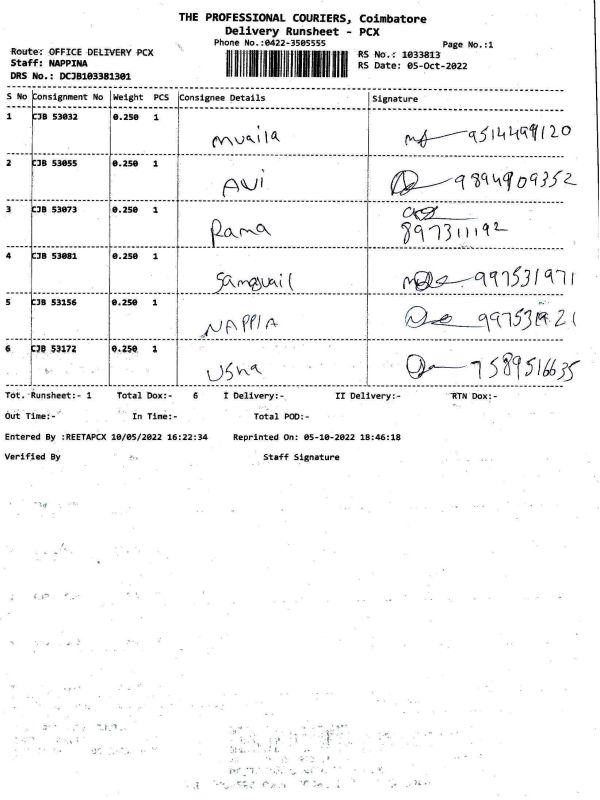 THE PROFESSIONAL COURIERS, Coimbatore
Delivery Runsheet - PCX
Phone No.:0422-3505555
Page No.:1
Route: OFFICE DELIVERY PCX
RS No.: 1033813
Staff: NAPPINA
RS Date: 05-Oct-2022
DRS No.: DCJB103381301
S No Consignment No Weight PCS Consignee Details Signature
1 CJB 53032 0.250 1
muaila 9514499120
2 CJB 53055 0.250 1
AVI 9894909352
3 CJB 53073 0.250 1
Rama 897311192
4 CJB 53081 0.250 1
997531971
5 CJB 53156 0.250 1
NAPPIA 997531921
6 CJB 53172 0.250 1
Usha 7589516635
Tot. Runsheet:- 1 Total Dox:- 6 I Delivery:- II Delivery:- RTN Dox:-
Out Time:- In Time:- Total POD:-
Entered By :REETAPCX 10/05/2022 16:22:34 Reprinted On: 05-10-2022 18:46:18
Verified By Staff Signature